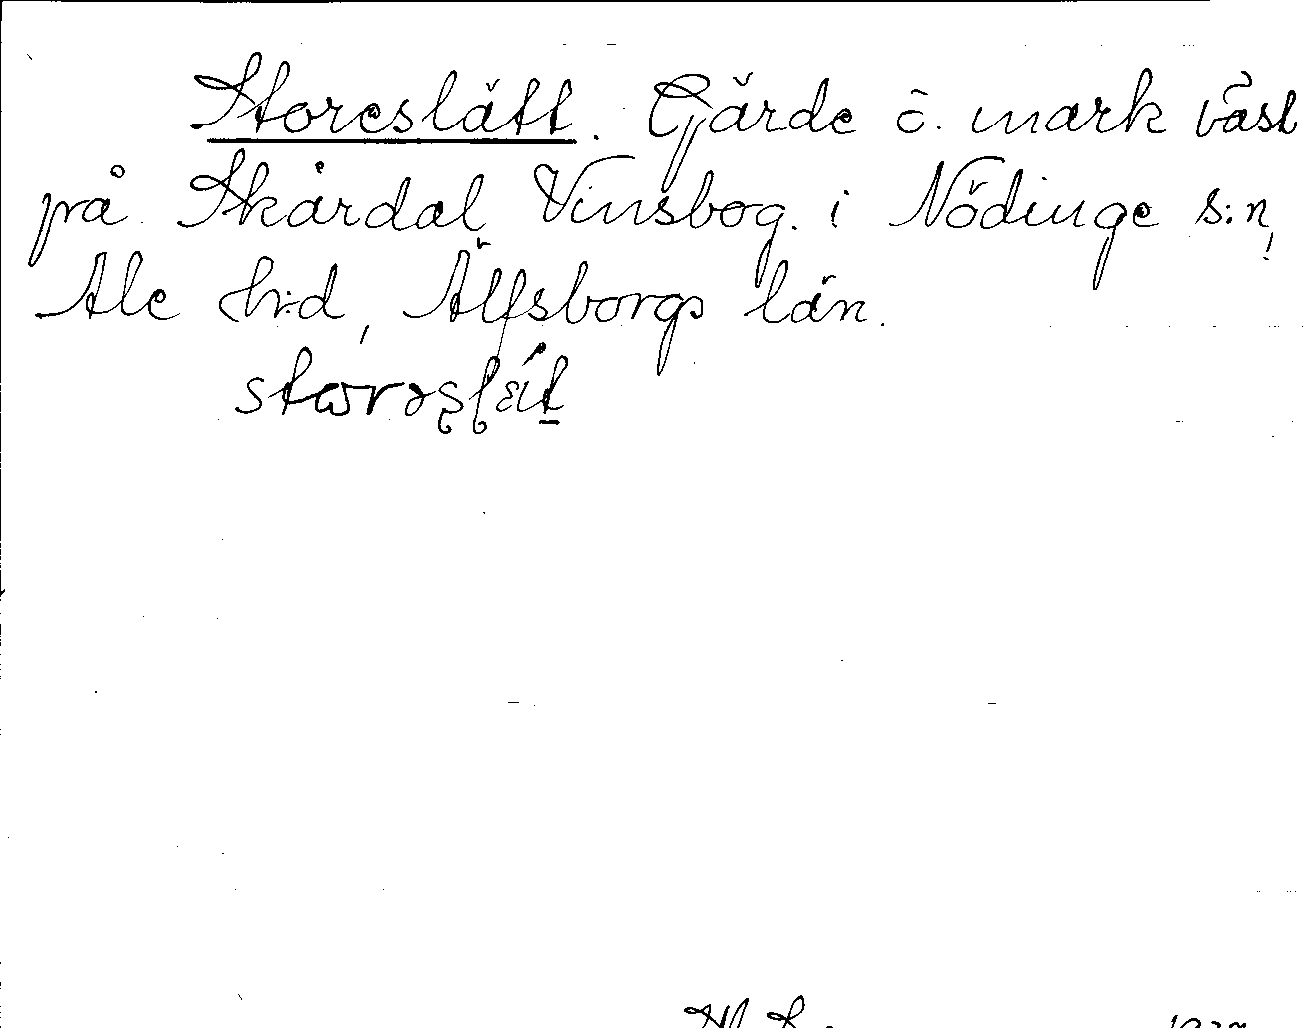 Storeslätt. Gärde o. mark väst
på Skårdal Vinsbog. i Nödinge s:n,
Ale h:d, Älfsborgs län.